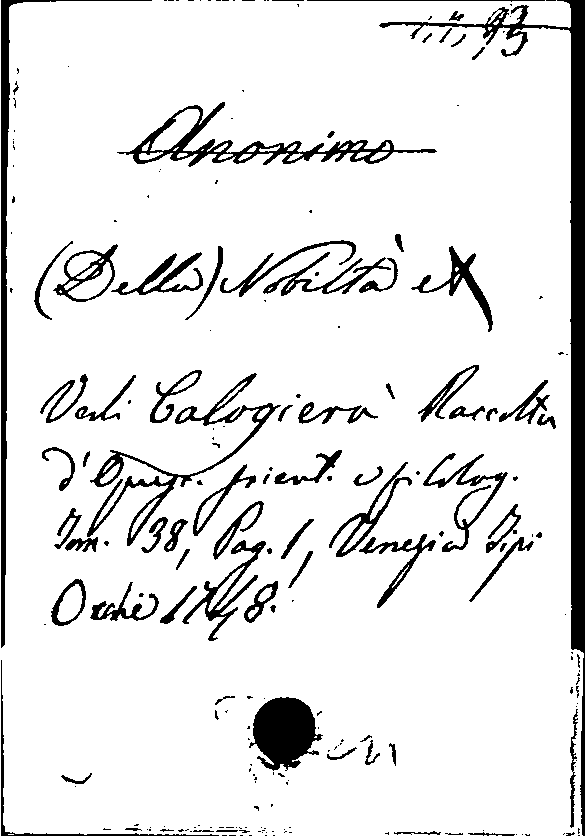 Anonimo
(Della) Nobiltà e
Vedi Calogierà Raccolta
d'Opusc. scient. e filolog.
Tom. 38, Pag. 1, Venezia Tipi
Occhi 1748.